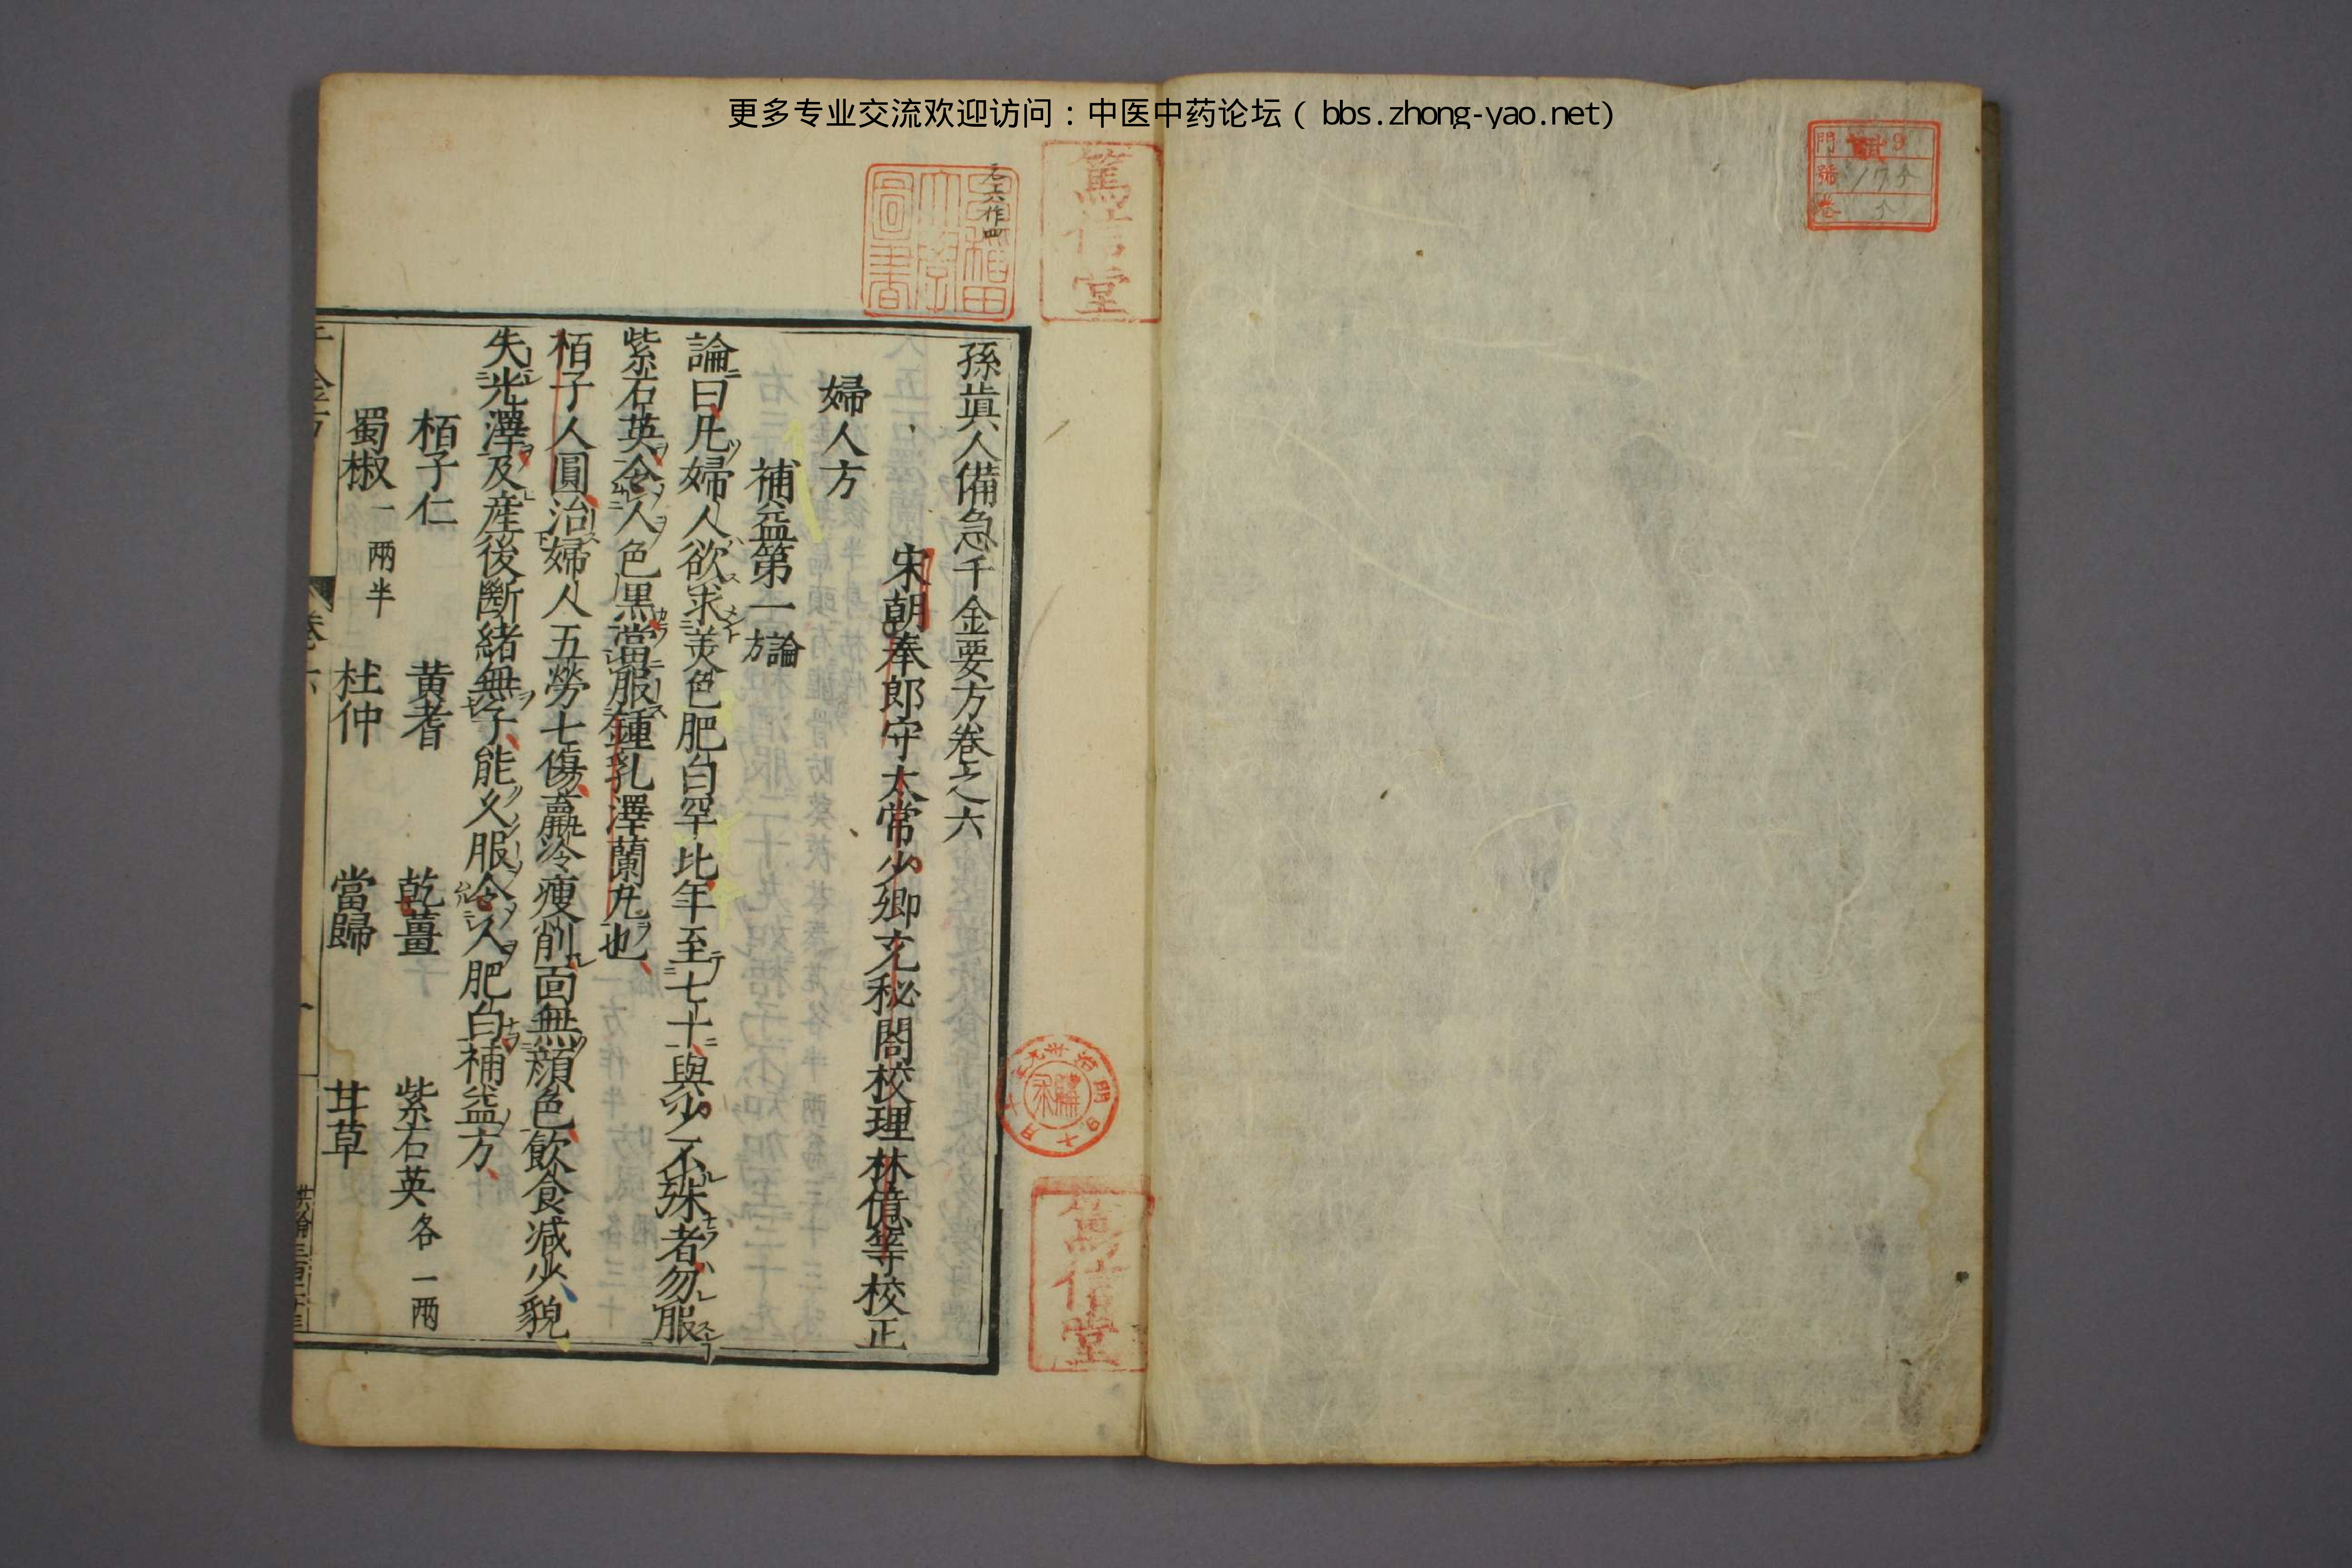 更多专业交流欢迎访问：中医中药论坛（bbs.zhong-yao.net)
門 9
號 17
卷
篤信堂
早稲田大學圖書
元六作四
孫真人備急千金要方卷之六
宋朝奉郎守太常少卿充秘閣校理林億等校正
婦人方
補益第一論方
論曰凡婦人欲求美色肥白罕比年至七十與少不殊者勿服
紫石英令人色黒當服鍾乳澤蘭丸也
栢子人圓治婦人五勞七傷羸冷瘦削面無顔色飲食減少貌
失光澤及産後斷緒無子能久服令人肥白補益方
栢子仁 黄耆 乾薑 紫石英各二兩
蜀椒一兩半 杜仲 當歸 甘草
卷六
篤信堂